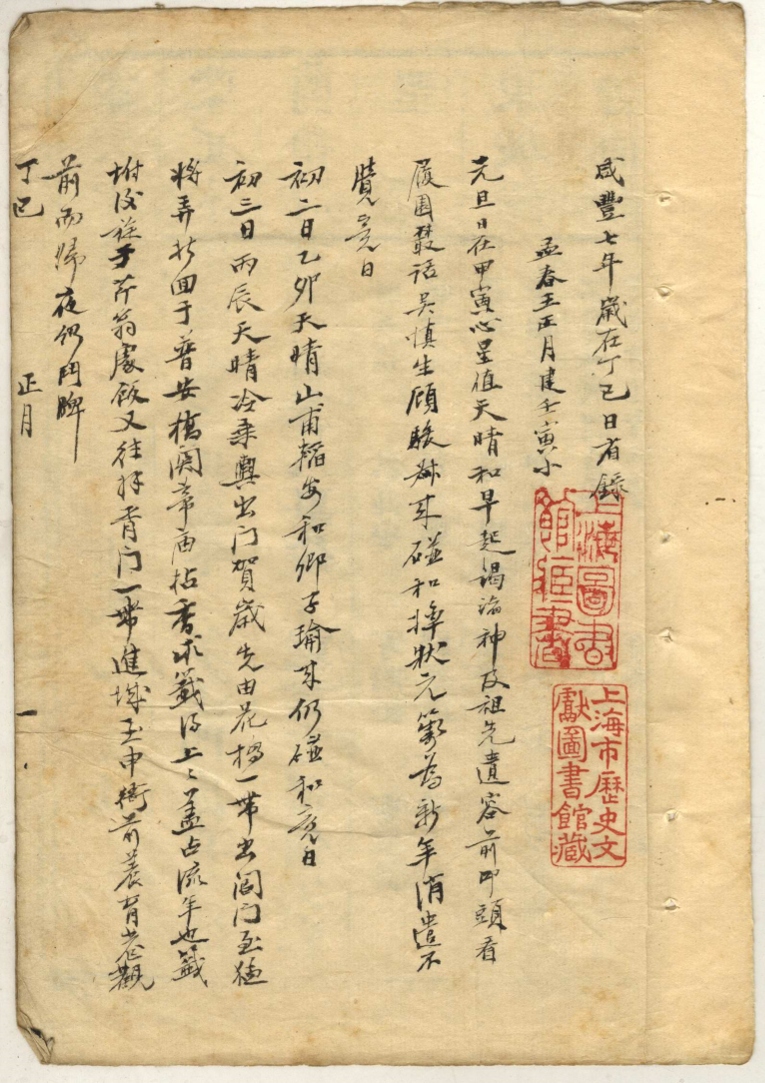 咸豐七年歲在丁巳日省錄
孟春王正月建壬寅小
元旦日在甲寅心星值天晴和早起謁諸神及祖先遺容前叩頭看
履園叢話吳慎生顧駿叔來碰和擲狀元籌為新年消遣不
覺竟日
初二日乙卯天晴山甫稻安和卿子瑜來仍碰和竟日
初三日丙辰天晴冷乘輿出门賀歲先由花橋一帶出閶门至
將弄折回于普安橋關帝庙拈香求籤得上上蓋占流年也籤
附後旋于芹翁處飯又往胥门一帶進城至申衙前
前而歸夜仍鬥牌
丁巳 正月 一
上海圖書館藏書
上海市歷史文獻圖書館藏